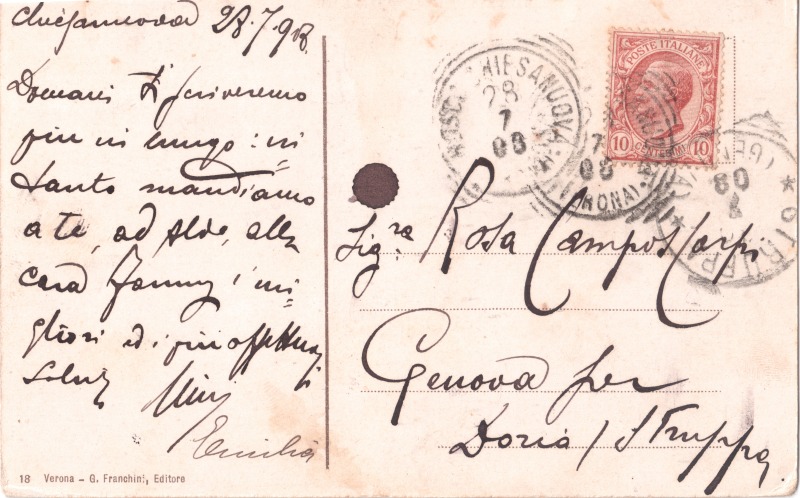 Chiesanuova 28.7.908
Domani ti scriveremo
più in lungo: in
tanto mandiamo
a te, ad Aldo, alla
cara Fanny i mi-
gliori ed i più affettuosi
saluti
Emilia
18 Verona - G. Franchini, Editore
POSTE ITALIANE
10 CENTESIMI 10
BOSCOCHIESANUOVA
28
7
08
7
08
(VERONA)
STRUPPA
Sig.ra Rosa Campos Carpi
Genova per
Doria / Struppa